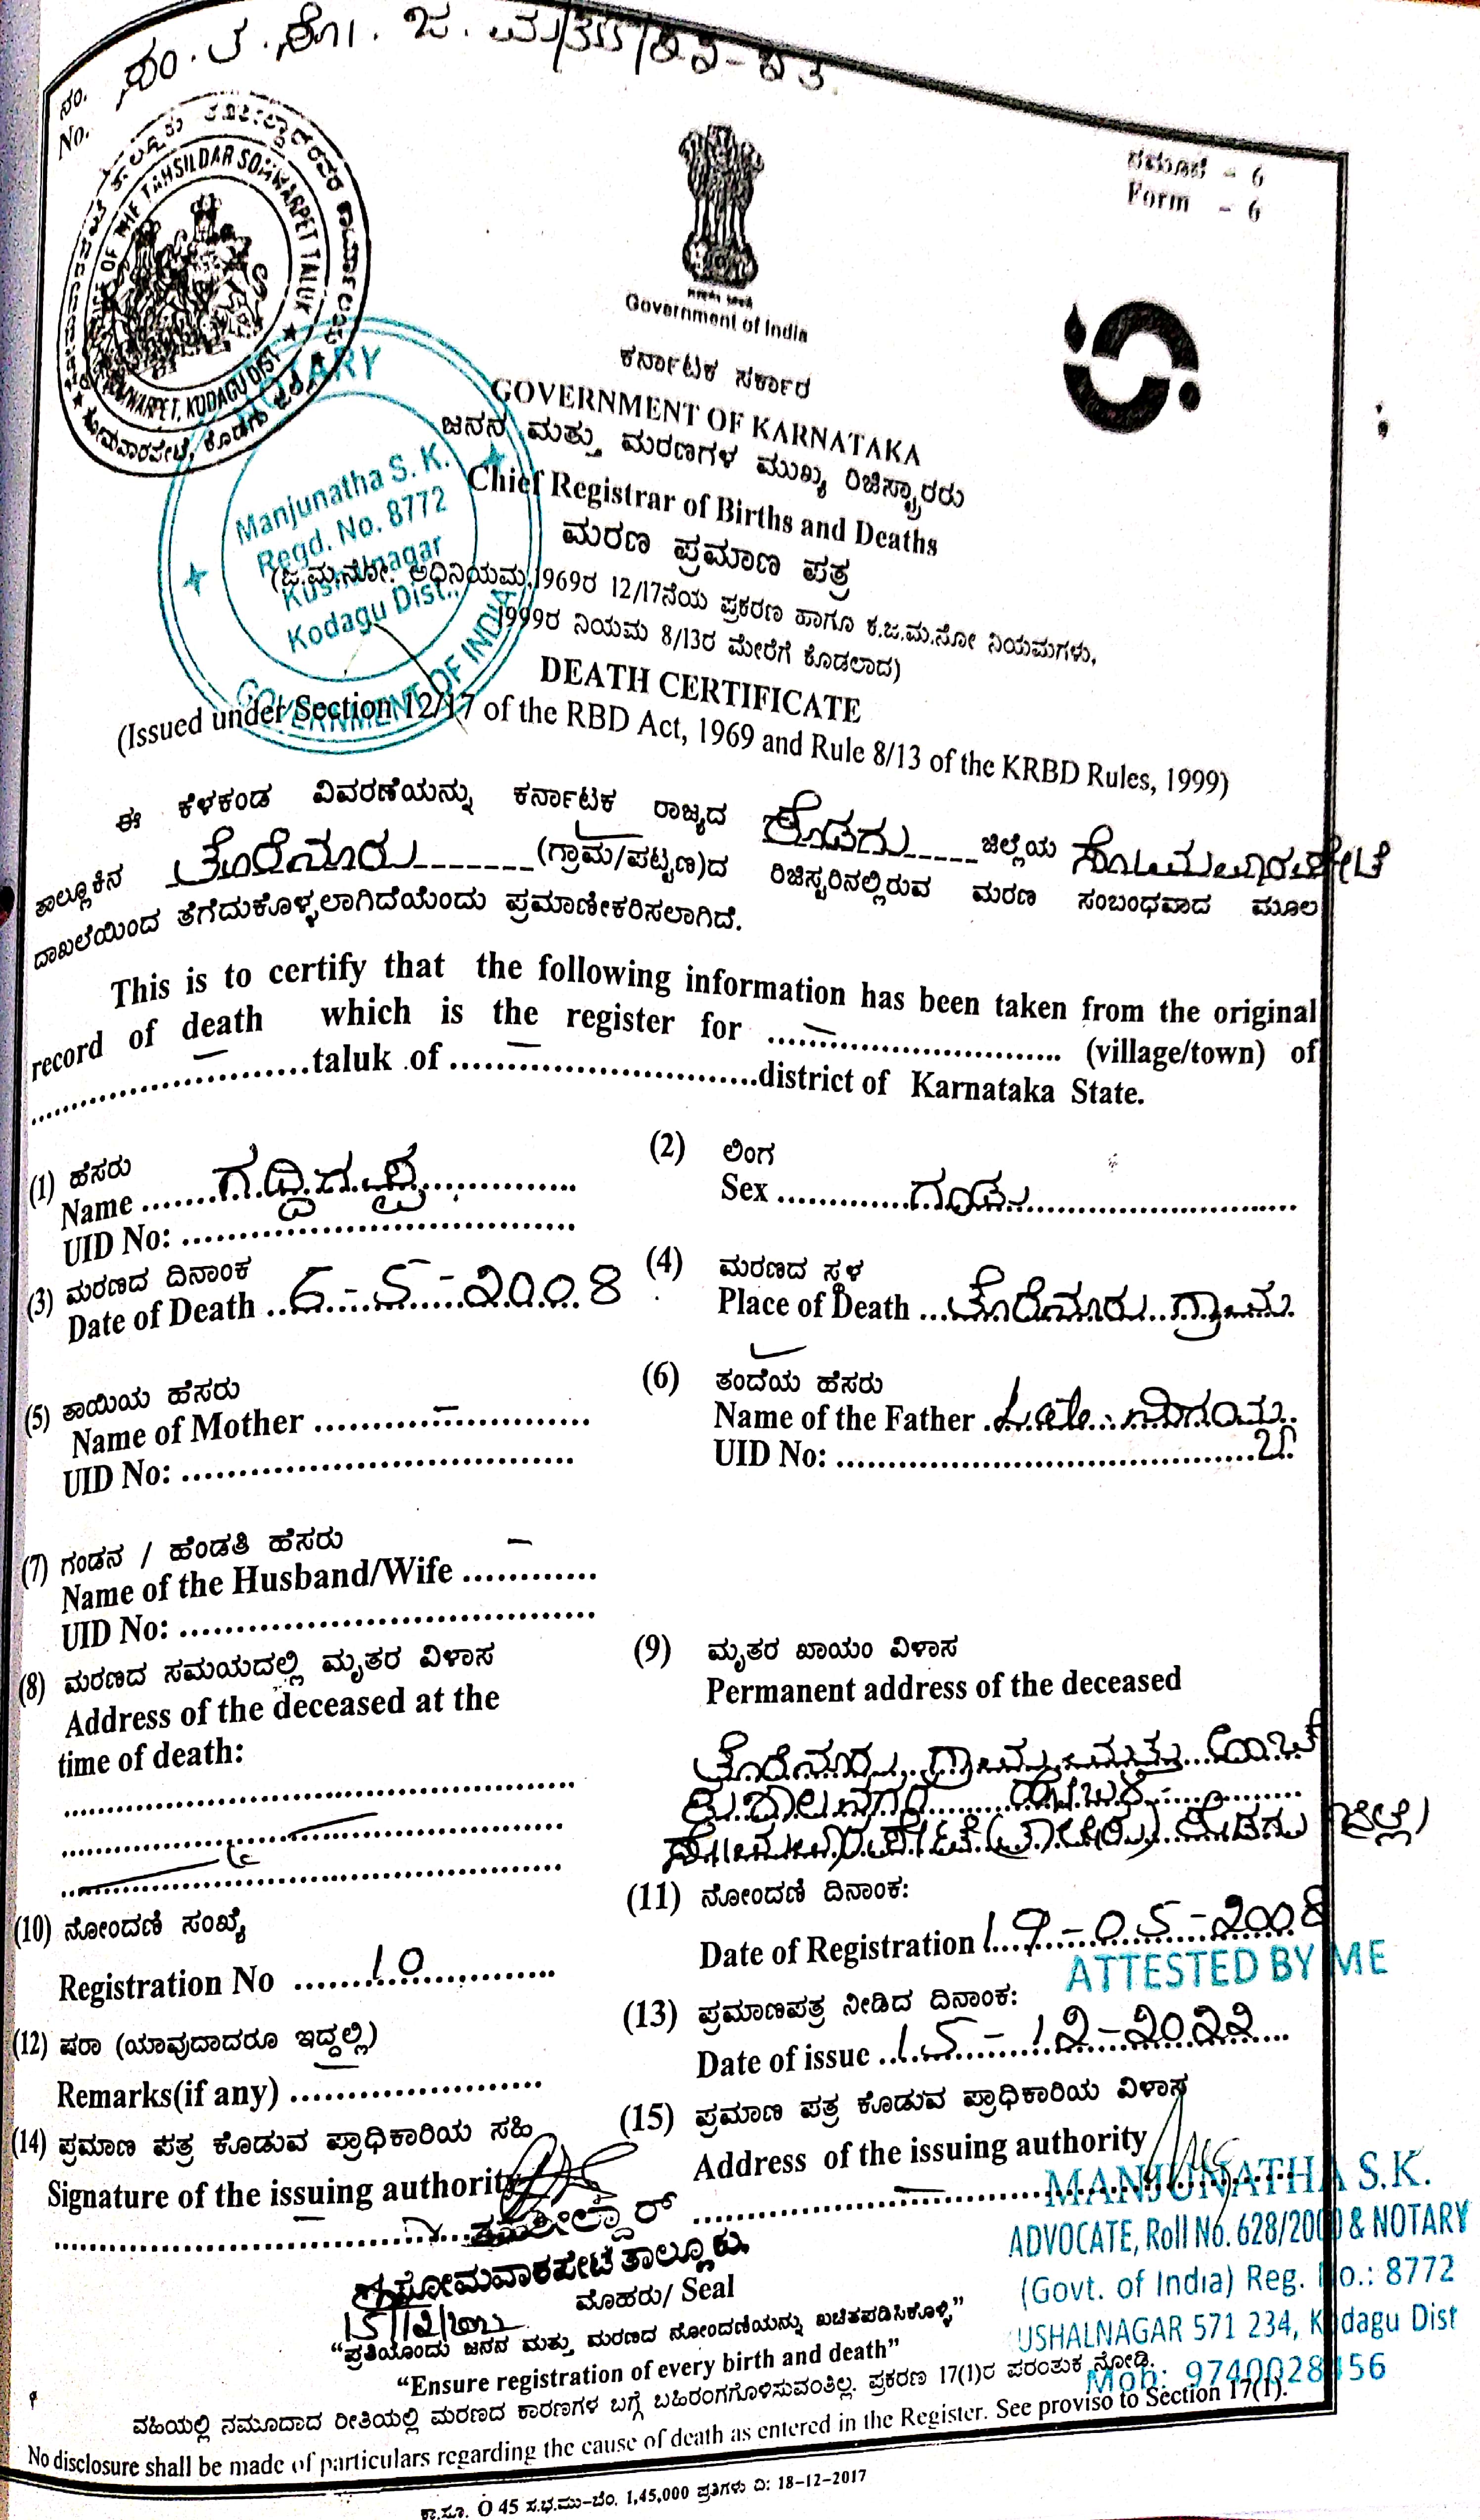 ನಂ.
No.
ನಮೂನೆ - 6
Form - 6
OF THE TAHSILDAR SOMWARPET TALUK
KODAGU DIST.
ಸೋಮವಾರಪೇಟೆ, ಕೊಡಗು
Government of India
ಕರ್ನಾಟಕ ಸರ್ಕಾರ
GOVERNMENT OF KARNATAKA
ಜನನ ಮತ್ತು ಮರಣಗಳ ಮುಖ್ಯ ರಿಜಿಸ್ಟ್ರಾರರು
Chief Registrar of Births and Deaths
ಮರಣ ಪ್ರಮಾಣ ಪತ್ರ
NOTARY
Manjunatha S. K.
Regd. No. 8772
Kushalnagar
Kodagu Dist.,
GOVERNMENT OF INDIA
(ಜ.ಮ.ನೋ. ಅಧಿನಿಯಮ,1969ರ 12/17ನೆಯ ಪ್ರಕರಣ ಹಾಗೂ ಕ.ಜ.ಮ.ನೋ ನಿಯಮಗಳು,
1999ರ ನಿಯಮ 8/13ರ ಮೇರೆಗೆ ಕೊಡಲಾದ)
DEATH CERTIFICATE
(Issued under Section 12/17 of the RBD Act, 1969 and Rule 8/13 of the KRBD Rules, 1999)
ಈ ಕೆಳಕಂಡ ವಿವರಣೆಯನ್ನು ಕರ್ನಾಟಕ ರಾಜ್ಯದ ಕೊಡಗು ಜಿಲ್ಲೆಯ ಸೋಮವಾರಪೇಟೆ
ತಾಲ್ಲೂಕಿನ ತೊರೆನೂರು (ಗ್ರಾಮ/ಪಟ್ಟಣ)ದ ರಿಜಿಸ್ಟರಿನಲ್ಲಿರುವ ಮರಣ ಸಂಬಂಧವಾದ ಮೂಲ
ದಾಖಲೆಯಿಂದ ತೆಗೆದುಕೊಳ್ಳಲಾಗಿದೆಯೆಂದು ಪ್ರಮಾಣೀಕರಿಸಲಾಗಿದೆ.
This is to certify that the following information has been taken from the original
record of death which is the register for ........–........ (village/town) of
........–........taluk of ........–........district of Karnataka State.
(1) ಹೆಸರು
Name ....... ಗದ್ದಿಗಪ್ಪ .......
UID No: .......
(2) ಲಿಂಗ
Sex ....... ಗಂಡು .......
(3) ಮರಣದ ದಿನಾಂಕ
Date of Death .. 6-5-2008
(4) ಮರಣದ ಸ್ಥಳ
Place of Death ... ತೊರೆನೂರು ಗ್ರಾಮ
(5) ತಾಯಿಯ ಹೆಸರು
Name of Mother .......–.......
UID No: .......
(6) ತಂದೆಯ ಹೆಸರು
Name of the Father . Late
UID No: .......
(7) ಗಂಡನ / ಹೆಂಡತಿ ಹೆಸರು
Name of the Husband/Wife ....–....
UID No: .......
(8) ಮರಣದ ಸಮಯದಲ್ಲಿ ಮೃತರ ವಿಳಾಸ
Address of the deceased at the
time of death:
(9) ಮೃತರ ಖಾಯಂ ವಿಳಾಸ
Permanent address of the deceased
ತೊರೆನೂರು ಗ್ರಾಮ ಮತ್ತು ಅಂಚೆ
ಕುಶಾಲನಗರ ಹೋಬಳಿ
ಸೋಮವಾರಪೇಟೆ (ತಾ) ಕೊಡಗು ಜಿಲ್ಲೆ
(10) ನೋಂದಣಿ ಸಂಖ್ಯೆ
Registration No ....... 10 .......
(11) ನೋಂದಣಿ ದಿನಾಂಕ:
Date of Registration 19-05-2008
ATTESTED BY ME
(12) ಷರಾ (ಯಾವುದಾದರೂ ಇದ್ದಲ್ಲಿ)
Remarks(if any) .......–.......
(13) ಪ್ರಮಾಣಪತ್ರ ನೀಡಿದ ದಿನಾಂಕ:
Date of issue .. 15-12-2022
(14) ಪ್ರಮಾಣ ಪತ್ರ ಕೊಡುವ ಪ್ರಾಧಿಕಾರಿಯ ಸಹಿ
Signature of the issuing authority
(15) ಪ್ರಮಾಣ ಪತ್ರ ಕೊಡುವ ಪ್ರಾಧಿಕಾರಿಯ ವಿಳಾಸ
Address of the issuing authority
ತಹಶೀಲ್ದಾರ್
ಸೋಮವಾರಪೇಟೆ ತಾಲ್ಲೂಕು.
15/12/2022
ಮೊಹರು/ Seal
MANJUNATHA S.K.
ADVOCATE, Roll No. 628/2000 & NOTARY
(Govt. of India) Reg. No.: 8772
USHALNAGAR 571 234, Kodagu Dist
Mob: 9740028456
“ಪ್ರತಿಯೊಂದು ಜನನ ಮತ್ತು ಮರಣದ ನೋಂದಣಿಯನ್ನು ಖಚಿತಪಡಿಸಿಕೊಳ್ಳಿ”
“Ensure registration of every birth and death”
ವಹಿಯಲ್ಲಿ ನಮೂದಾದ ರೀತಿಯಲ್ಲಿ ಮರಣದ ಕಾರಣಗಳ ಬಗ್ಗೆ ಬಹಿರಂಗಗೊಳಿಸುವಂತಿಲ್ಲ. ಪ್ರಕರಣ 17(1)ರ ಪರಂತುಕ ನೋಡಿ.
No disclosure shall be made of particulars regarding the cause of death as entered in the Register. See proviso to Section 17(1).
ಕಾ.ಸೂ. O 45 ಸ.ಭ.ಮು-ಬೆಂ. 1,45,000 ಪ್ರತಿಗಳು ದಿ: 18-12-2017